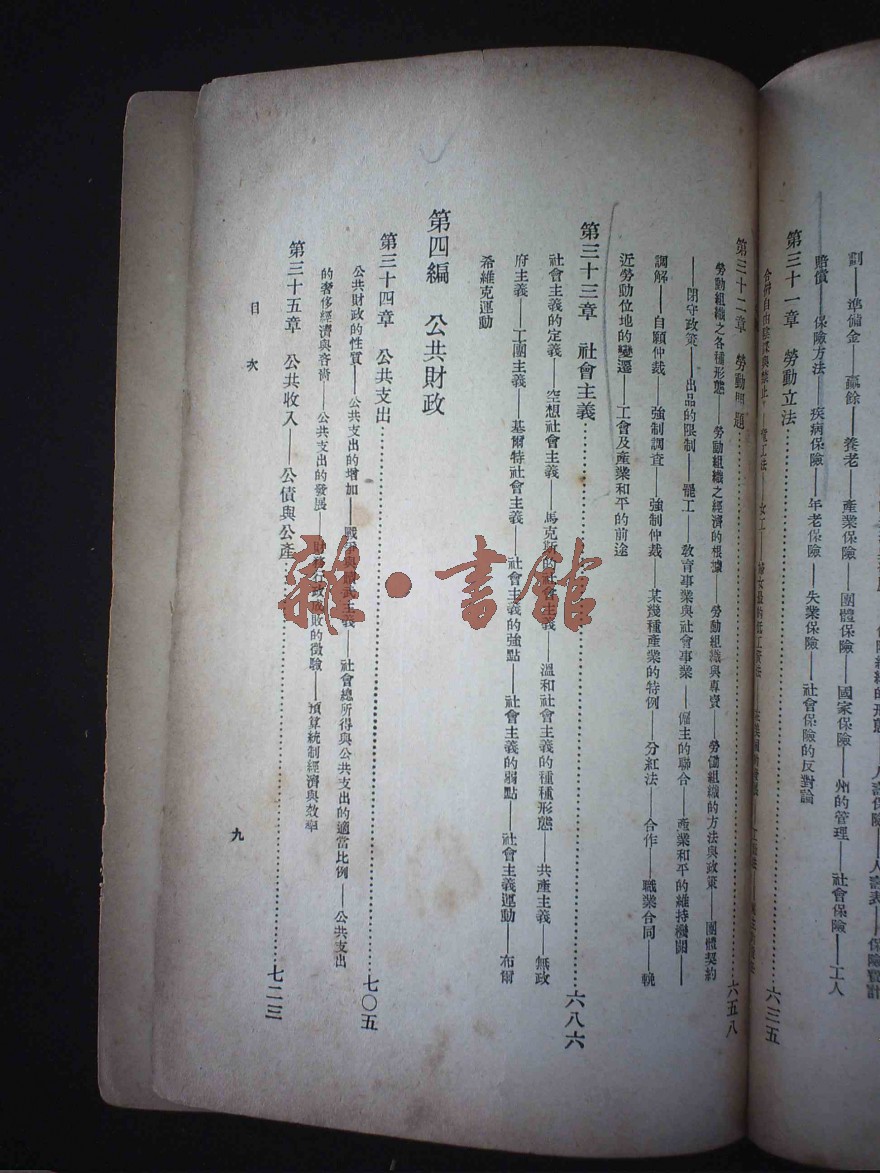 劃——準備金——贏餘——養老——產業保險——團體保險——國家保險——州的管理——社會保險——工人
賠償——保險方法——疾病保險——年老保險——失業保險——社會保險的反對論
第三十一章 勞動立法……六三五
第三十二章 勞動問題……六五八
勞動組織之各種形態——勞動組織之經濟的根據——勞動組織與專賣——勞働組織的方法與政策——團體契約
——閉守政策——出品的限制——罷工——敎育事業與社會事業——僱主的聯合——產業和平的維持機關——
調解——自願仲裁——強制調查——強制仲裁——某幾種產業的特例——分紅法——合作——職業合同——輓
近勞動位地的變遷——工會及產業和平的前途
第三十三章 社會主義……六八六
社會主義的定義——空想社會主義——馬克斯的社會主義——溫和社會主義的種種形態——共產主義——無政
府主義——工團主義——基爾特社會主義——社會主義的強點——社會主義的弱點——社會主義運動——布爾
希維克運動
第四編 公共財政
第三十四章 公共支出……七〇五
公共財政的性質——公共支出的增加——戰爭與主義——社會總所得與公共支出的適當比例——公共支出
的奢侈經濟與吝嗇——公共支出的發展——財務行政成敗的徵驗——預算統制經濟與效率
第三十五章 公共收入——公債與公產……七二三
目次
九
雜·書館